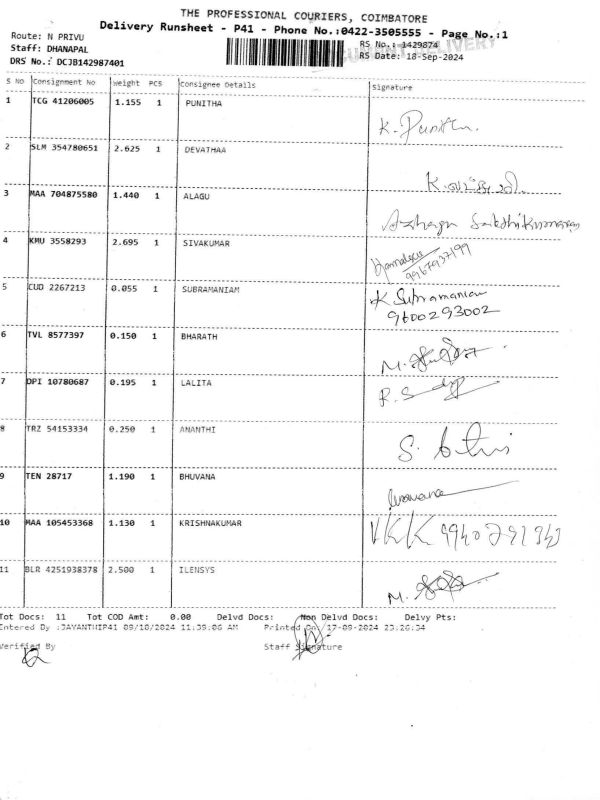 THE PROFESSIONAL COURIERS, COIMBATORE
Delivery Runsheet - P41 - Phone No.:0422-3505555 - Page No.:1
Route: N PRIVU
RS No.: 1429874
Staff: DHANAPAL
RS Date: 18-Sep-2024
DRS No.: DCJB142987401
DELIVERY
S No Consignment No Weight PCS Consignee Details Signature
1 TCG 41206005 1.155 1 PUNITHA K. Punitha.
2 SLM 354780651 2.625 1 DEVATHAA
3 MAA 704875580 1.440 1 ALAGU Azhagu Sakthikumaran
4 KMU 3558293 2.695 1 SIVAKUMAR
9967937199
5 CUD 2267213 0.055 1 SUBRAMANIAM K Subramanian
9600293002
6 TVL 8577397 0.150 1 BHARATH M.
7 DPI 10780687 0.195 1 LALITA R.S
8 TRZ 54153334 0.250 1 ANANTHI S.
9 TEN 28717 1.190 1 BHUVANA
10 MAA 105453368 1.130 1 KRISHNAKUMAR VKK
11 BLR 4251938378 2.500 1 ILENSYS M.
Tot Docs: 11 Tot COD Amt: 0.00 Delvd Docs: Non Delvd Docs: Delvy Pts:
Entered By :JAYANTHIP41 09/18/2024 11:39:06 AM Printed On 17-09-2024 23:26:34
Verified By Staff Signature